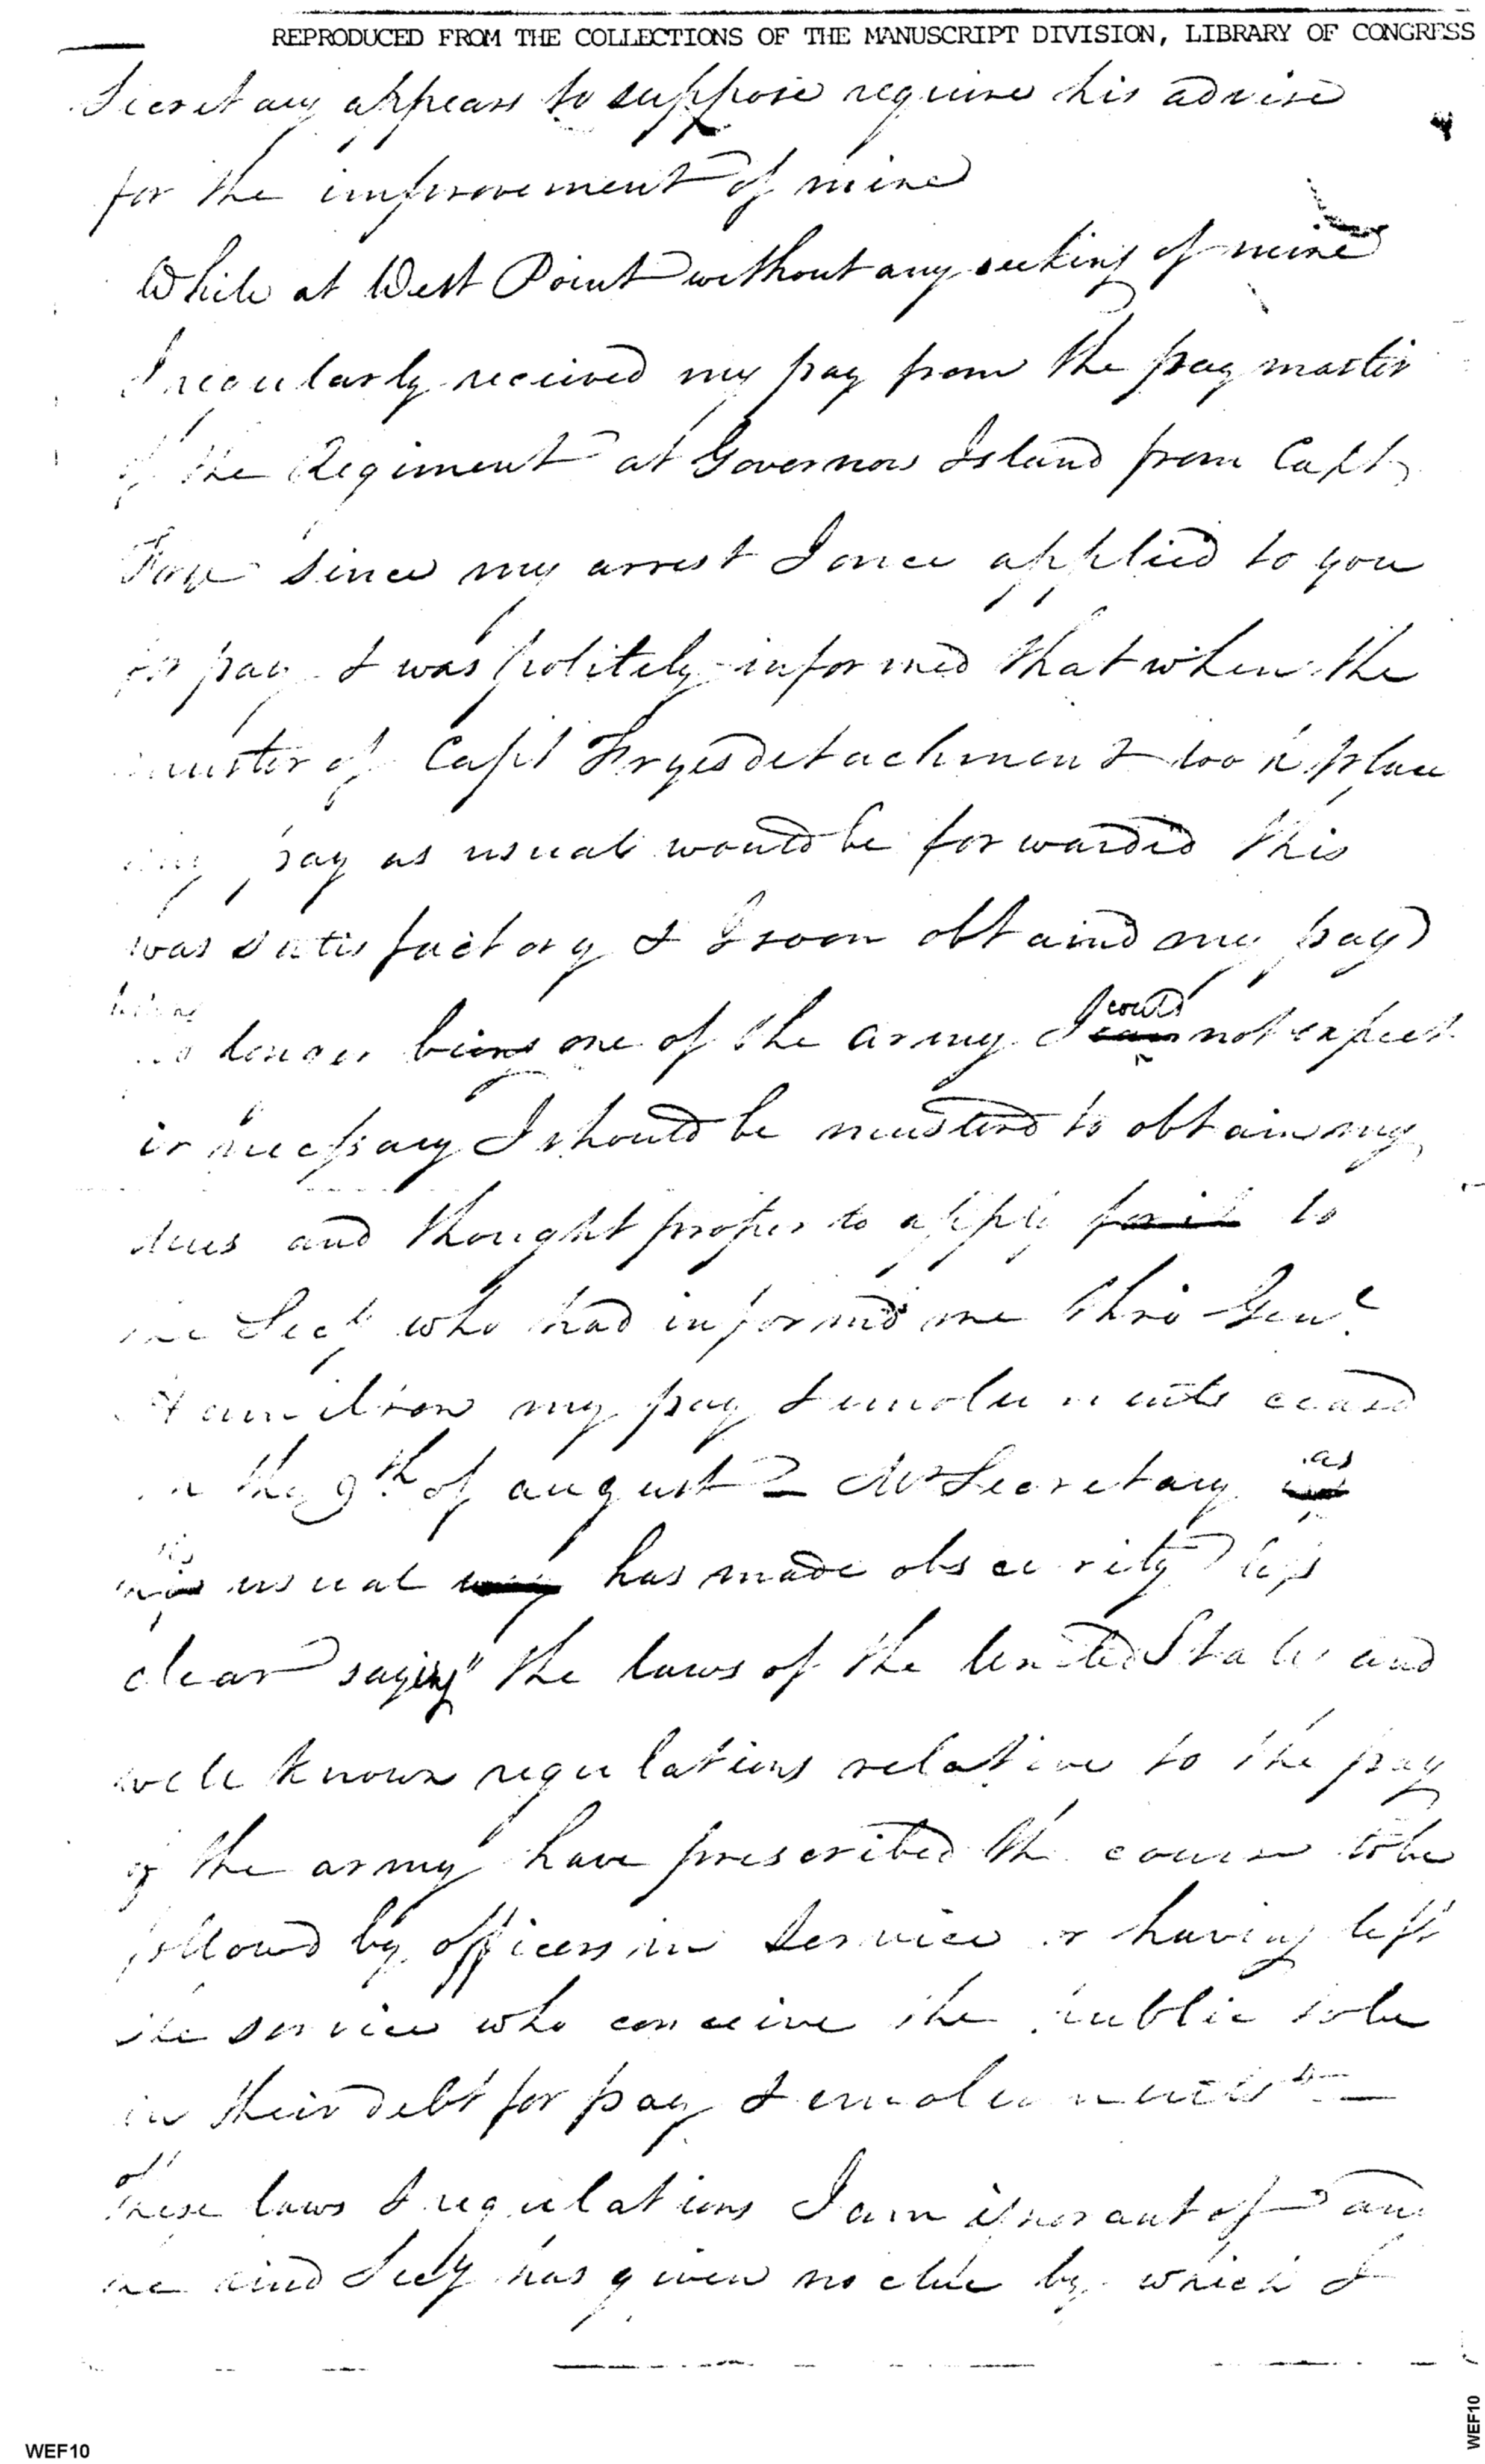 REPRODUCED FROM THE COLLECTIONS OF THE MANUSCRIPT DIVISION, LIBRARY OF CONGRESS
Secretary appears to suppose require his advise
for the improvement of mine
While at West Point without any seeking of mine
I regularly received my pay from the pay master
of the Regiment at Governors Island from Capt
Frye since my arrest I once applied to you
for pay I was politely informed that when the
muster of Capt Fryes detachment took place
my pay as usual would be forwarded this
was satisfactory & I soon obtaind my pay
being
no longer being one of the army I can not expect
could
it necessary I should be musterd to obtain my
dues and thought proper to apply for it to
the Secy who had informd me thro Genl
Hamilton my pay & emoluments ceasd
on the 9th of august Mr Secretary
as
is usual way has made obscurity less
clear saying "the laws of the United States and
well known regulations relative to the pay
of the army have prescribed the course to be
followd by officers in service or having left
the service who conceive the public to be
in their debt for pay & emoluments"
of
these laws & regulations I am ignorant of and
the kind Secy has given no clue by which I
WEF10
WEF10